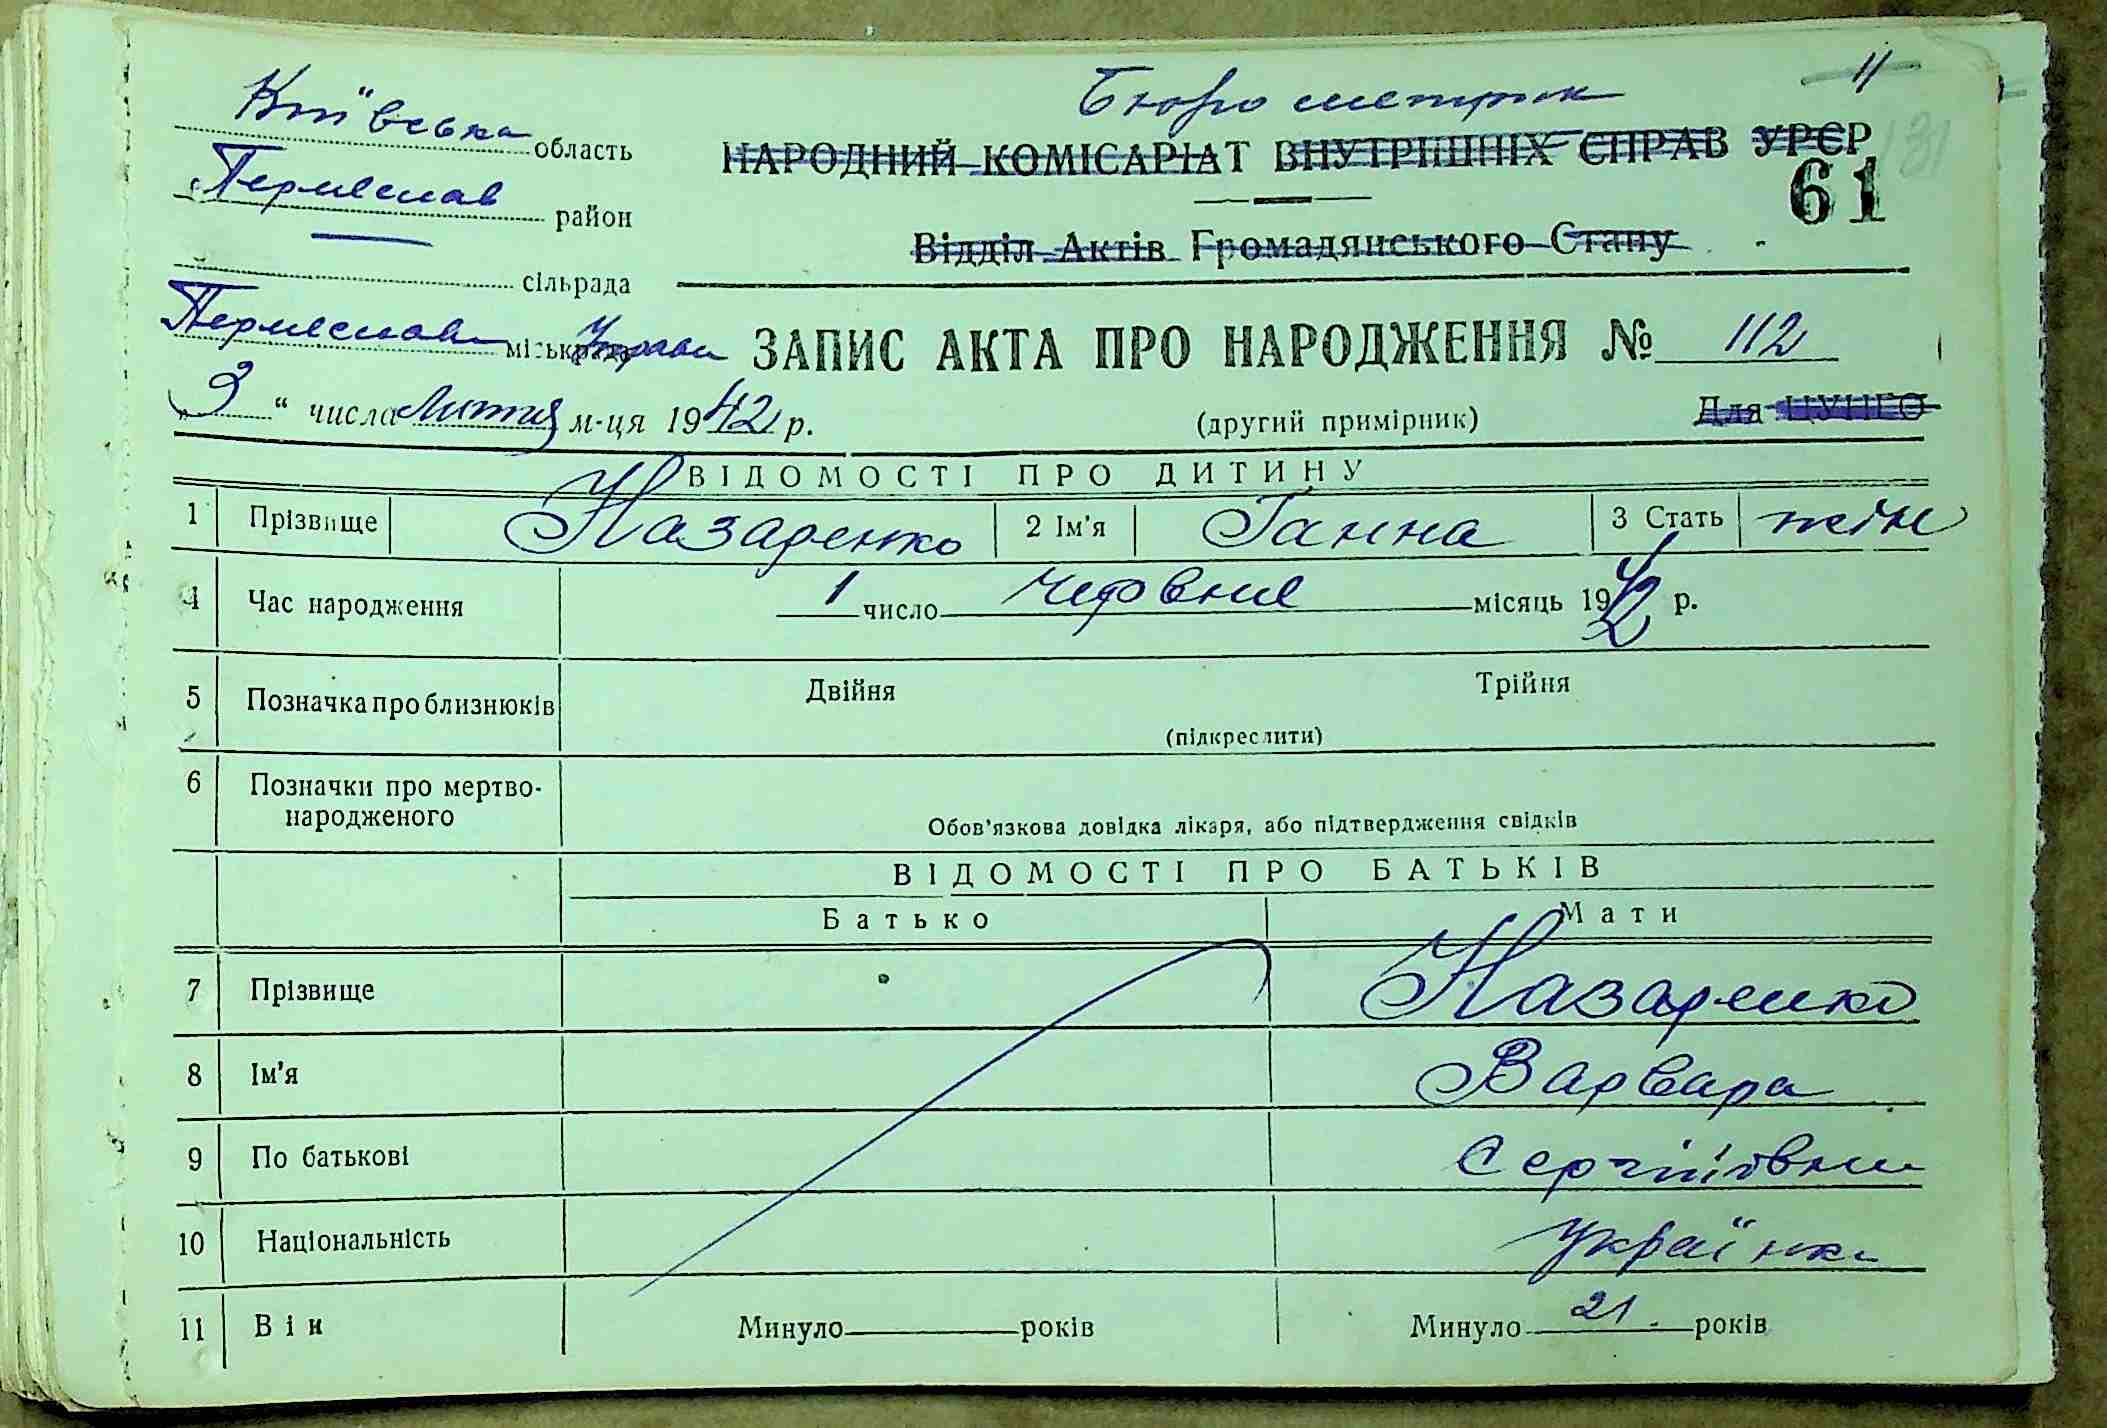 Київська область
Бюро метрик
11
НАРОДНИЙ КОМІСАРІАТ ВНУТРІШНІХ СПРАВ УРСР
131
Переяслав район
61
Відділ Актів Громадянського Стану
сільрада
Переяславська міськрада Управа
ЗАПИС АКТА ПРО НАРОДЖЕННЯ № 112
„3“ числа Липня м-ця 1942 р.
(другий примірник)
Для ЦУНГО
ВІДОМОСТІ ПРО ДИТИНУ
1 Прізвище Назаренко 2 Ім'я Ганна 3 Стать жін
4 Час народження 1 число червня місяць 1942 р.
5 Позначка про близнюків Двійня Трійня
(підкреслити)
6 Позначки про мертво-
народженого
Обов'язкова довідка лікаря, або підтвердження свідків
ВІДОМОСТІ ПРО БАТЬКІВ
Батько Мати
7 Прізвище Назаренко
8 Ім'я Варвара
9 По батькові Сергіївна
10 Національність Українка
11 Вік Минуло років Минуло 21 років